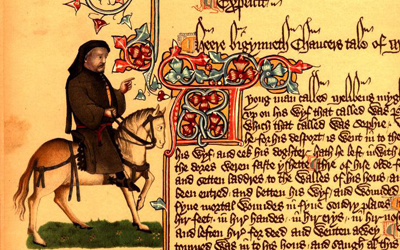 Explicit
Heere bigynneth Chaucers tale of M
A yong man called Melibeus myg
vp on his wyf that called was
Which that called was Sophie
for his desport is went in to the
his wyf and eek his doghter hath he left in with
the dores weren faste yshette Thre of hise olde fo
and setten laddres to the walles of his hous an
been entred and betten his wyf and wounded
fyue mortal woundes in fyue sondry places
hir feet in hir handes in hir erys in hir nose
and leften hir for deed and wenten awey
torned was in to his hous and saugh al this